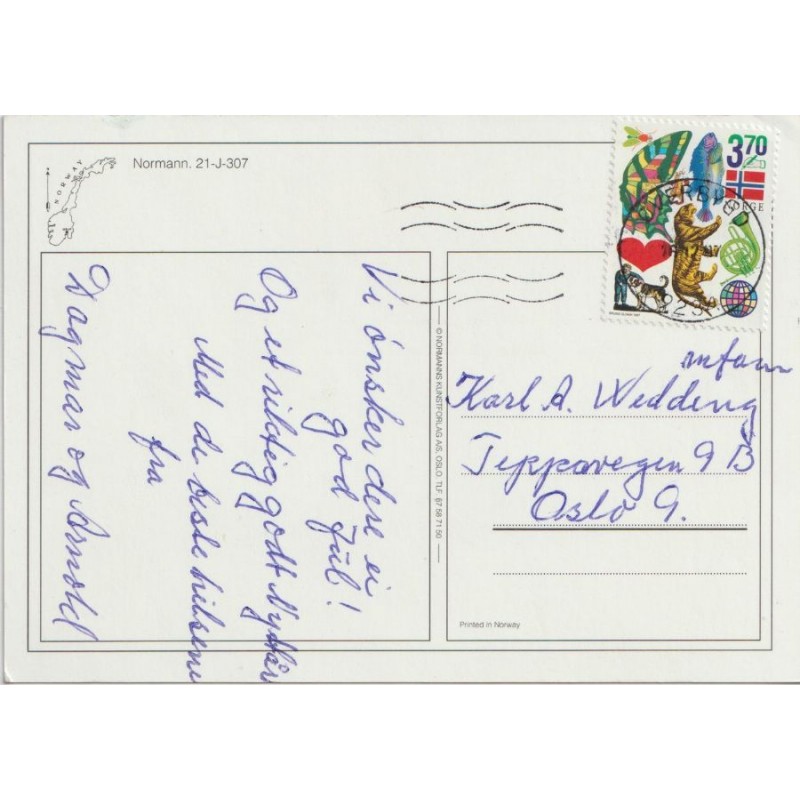 NORWAY
Normann. 21-J-307
3,70
NORGE
Vi önsker dere ei
god Jul!
Og et riktig godt Nyttår
Med de beste hilsener
fra
Dagmar og Arnold
© NORMANNS KUNSTFORLAG A/S, OSLO. TLF. 67 58 71 50
m/fam
Karl A. Wedding
Teppavegen 9 B
Oslo 9.
Printed in Norway